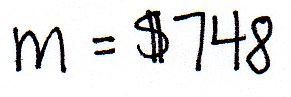 m = $748